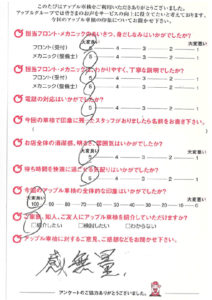 このたびはアップル車検をご利用いただきありがとうございました。
アップルグループではお客さまのお声をサービスの向上に役立てたいと考えております。
今回のアップル車検の印象についてお聞かせ下さい。
担当フロント・メカニックのあいさつ、身だしなみはいかがでしたか?
大変良い 大変悪い
フロント(受付) 5 4 3 2 1
メカニック(整備士) 5 4 3 2 1
担当フロント・メカニックはわかりやすく、丁寧な説明でしたか?
フロント(受付) 5 4 3 2 1
メカニック(整備士) 5 4 3 2 1
電話の対応はいかがでしたか?
5 4 3 2 1
今回の車検で印象に残ったスタッフがおりましたら名前をお書き下さい。
お店全体の清潔感、明るさ、雰囲気はいかがでしたか?
大変良い 大変悪い
5 4 3 2 1
待ち時間を快適に過ごせる気配りはいかがでしたか?
5 4 3 2 1
今回のアップル車検の全体的な印象はいかがでしたか?
大変良い 大変悪い
100 90 80 70 60 50 40 30 20 10 0
ご家族、知人、ご友人にアップル車検を紹介していただけますか?
□紹介したい □検討したい □わからない
アップル車検に対するご意見、ご感想などをお聞かせ下さい。
感無量.
アンケートのご協力ありがとうございました。